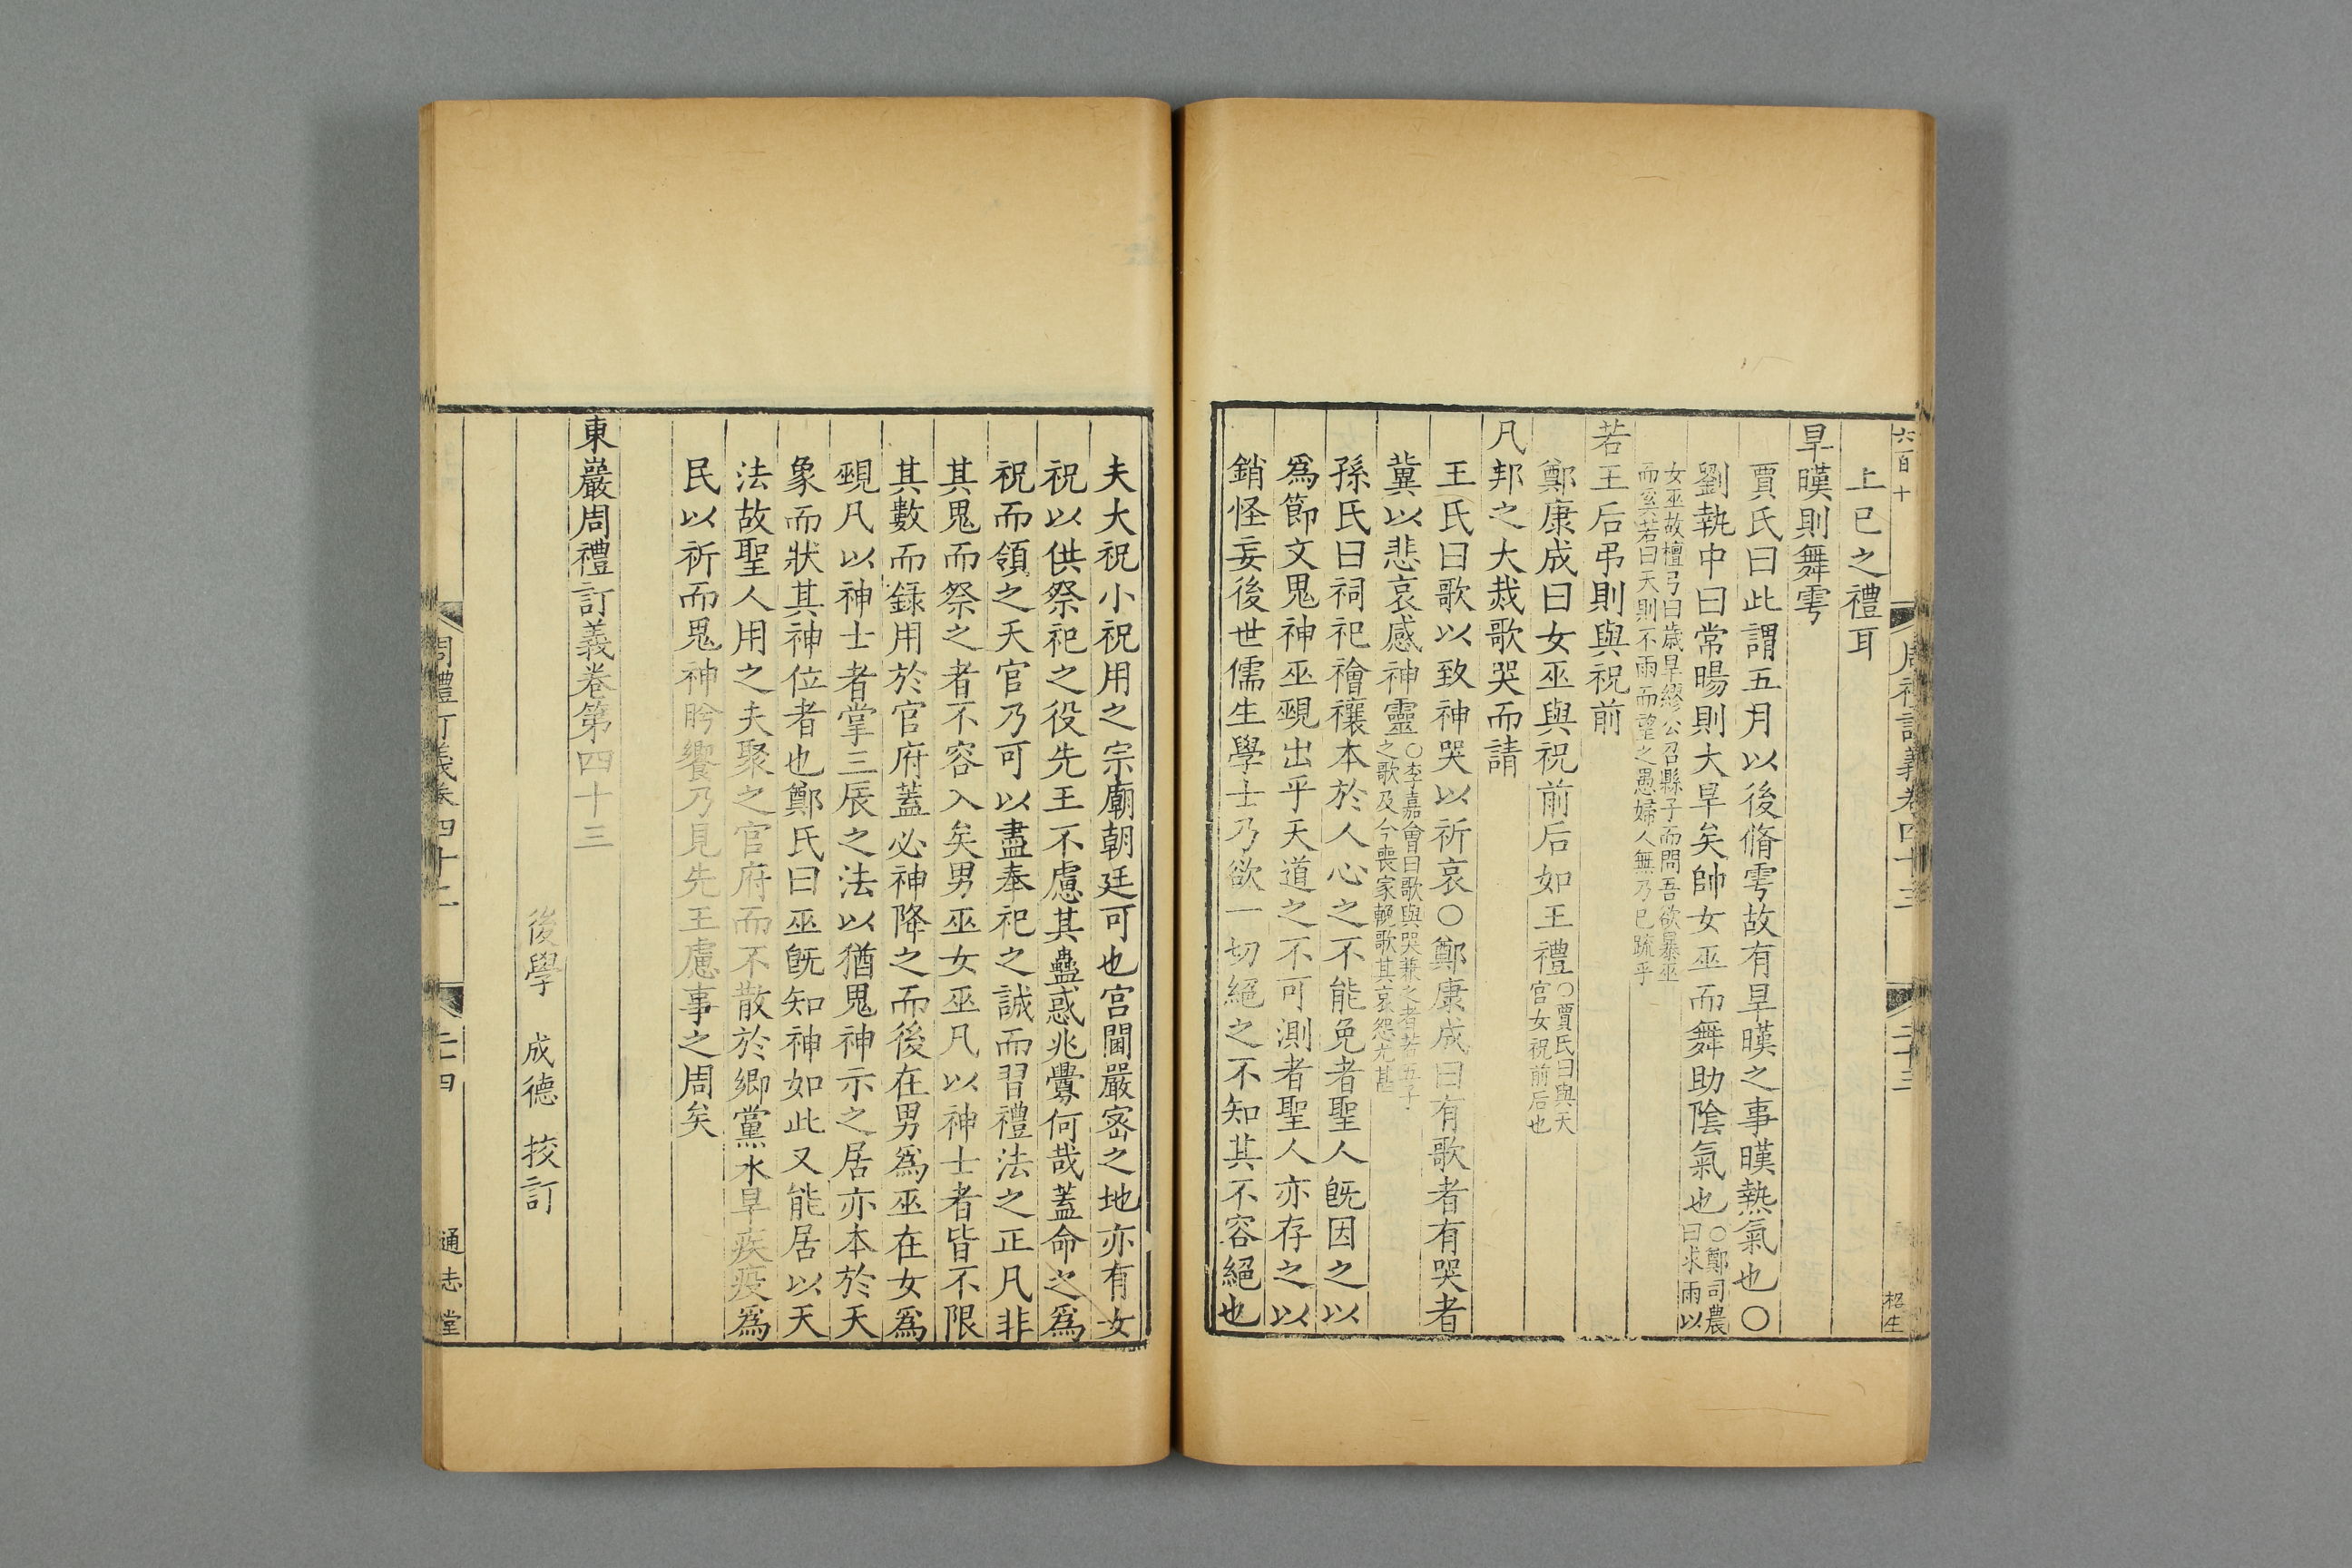 六百十
周禮訂義卷四十三
二十三
上巳之禮耳
旱暵則舞雩
賈氏曰此謂五月以後脩雩故有旱暵之事暵熱氣也○
劉執中曰常暘則大旱矣帥女巫而舞助陰氣也○鄭司農
曰求雨以
女巫故檀弓曰歲旱繆公召縣子而問吾欲暴巫
而奚若曰天則不雨而望之愚婦人無乃已疏乎
若王后弔則與祝前
鄭康成曰女巫與祝前后如王禮○賈氏曰與天
官女祝前后也
凡邦之大烖歌哭而請
王氏曰歌以致神哭以祈哀○鄭康成曰有歌者有哭者
冀以悲哀感神靈○李嘉會曰歌與哭兼之者若五子
之歌及今喪家輓歌其哀怨尤甚
孫氏曰祠祀禬禳本於人心之不能免者聖人旣因之以
爲節文鬼神巫覡出乎天道之不可測者聖人亦存之以
銷怪妄後世儒生學士乃欲一切絕之不知其不容絕也
夫大祝小祝用之宗廟朝廷可也宮閫嚴密之地亦有女
祝以供祭祀之役先王不慮其蠱惑兆釁何哉蓋命之爲
祝而領之天官乃可以盡奉祀之誠而習禮法之正凡非
其鬼而祭之者不容入矣男巫女巫凡以神士者皆不限
其數而録用於官府蓋必神降之而後在男爲巫在女爲
覡凡以神士者掌三辰之法以猶鬼神示之居亦本於天
象而狀其神位者也鄭氏曰巫旣知神如此又能居以天
法故聖人用之夫聚之官府而不散於鄉黨水旱疾疫爲
民以祈而鬼神肸蠁乃見先王慮事之周矣
東巖周禮訂義卷第四十三
後學 成德 挍訂
周禮訂義卷四十三
二十四
通志堂